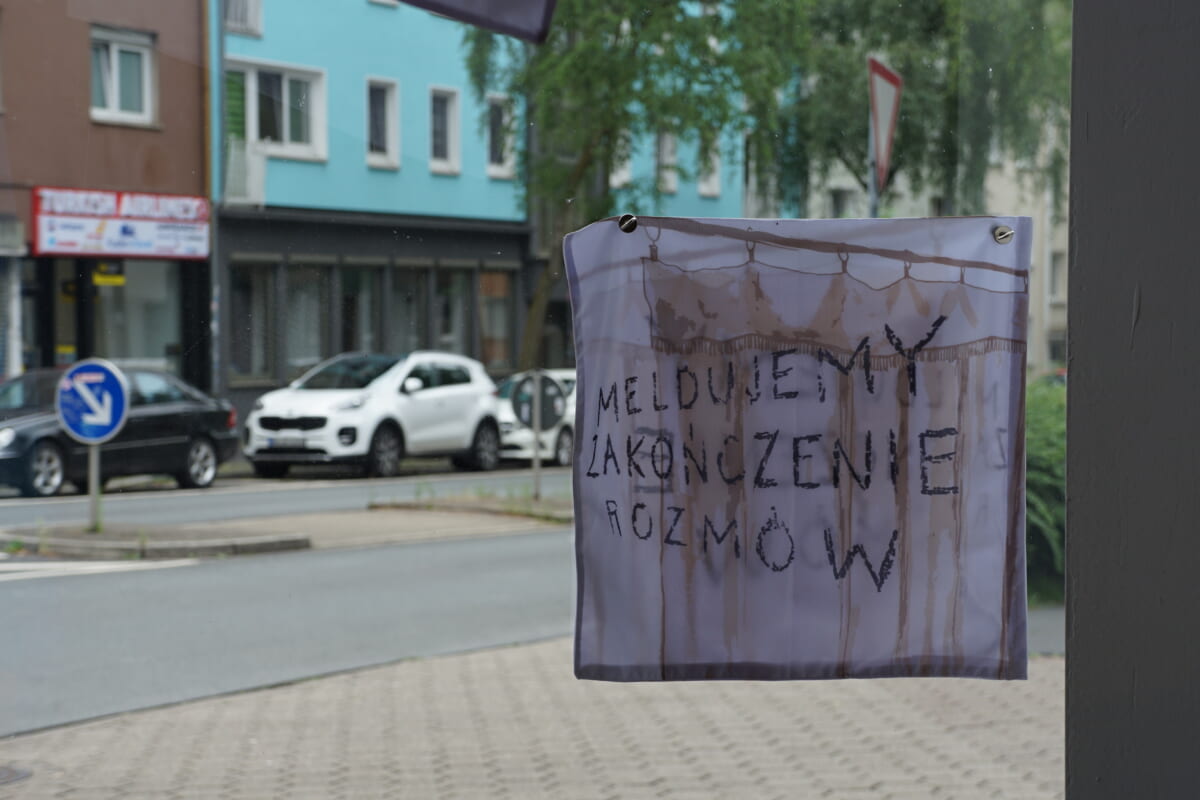 TURKISH AIRLINES
MELDUJEMY
ZAKOŃCZENIE
ROZMÓW